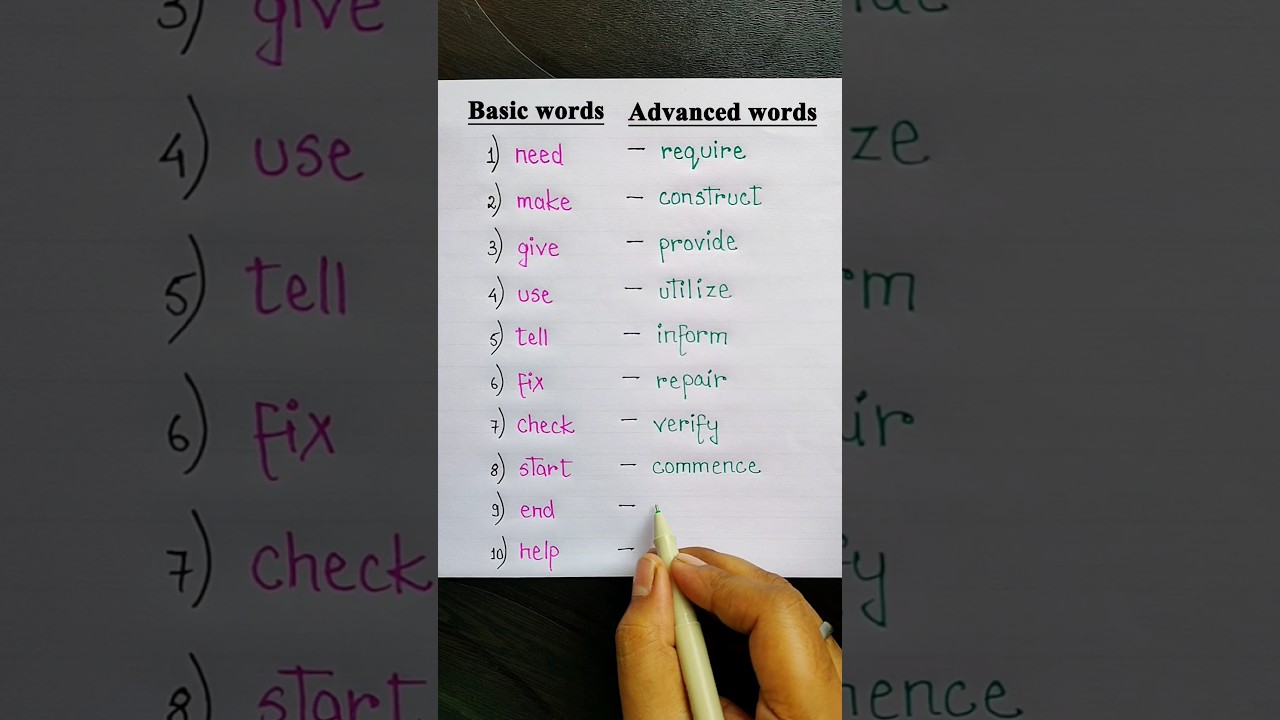 Basic words Advanced words
1) need – require
2) make – construct
3) give – provide
4) use – utilize
5) tell – inform
6) fix – repair
7) check – verify
8) start – commence
9) end –
10) help –